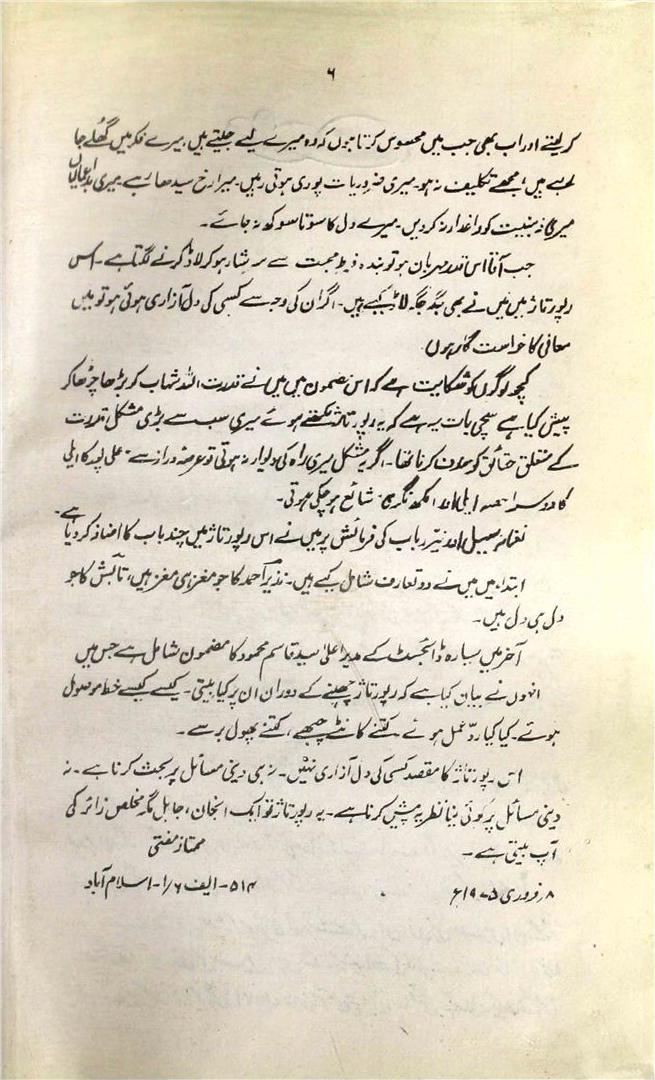 ۶
کر لیتے اور اب بھی جب میں محسوس کرتا ہوں کہ وہ میرے لیے جیتے ہیں میرے فکر میں گھلے جا
رہے ہیں، مجھے تکلیف نہ ہو۔ میری ضروریات پوری ہوتی رہیں۔ میرا رخ سیدھا رہے۔ میری بداعمالیاں
میری ذہنیت کو داغدار نہ کر دیں۔ میرے دل کا سوتا سوکھ نہ جائے۔
جب آقا اس قدر مہربان ہو تو بندہ فرطِ محبت سے سرشار ہو کر لاڈ کرنے لگتا ہے۔ اس
رپورتاژ میں میں نے بھی جگہ جگہ لاڈ کیے ہیں۔ اگر ان کی وجہ سے کسی کی دل آزاری ہوئی ہو تو میں
معافی کا خواست گار ہوں
کچھ لوگوں کو شکایت ہے کہ اس مضمون میں میں نے قدرت اللہ شہاب کو بڑھا چڑھا کر
پیش کیا ہے سچی بات یہ ہے کہ یہ رپورتاژ لکھتے ہوئے میری سب سے بڑی مشکل قدرت
کے متعلق حقائق کو حذف کرنا تھا۔ اگر یہ مشکل میری راہ کی دیوار نہ ہوتی تو عرصہ دراز سے "علی پور کا ایلی
کا دوسرا حصہ ایلی اور الکھ نگری" شائع ہو چکی ہوتی۔
نفائر سہیل اور نیّر رباب کی فرمائش پر میں نے اس رپورتاژ میں چند باب کا اضافہ کر دیا ہے۔
ابتدا میں میں نے دو تعارف شامل کیے ہیں۔ نذیر احمد کا جو مغز ہی مغز ہیں، تابش کا جو
دل ہی دل ہیں۔
آخر میں سیارہ ڈائجسٹ کے مدیر اعلیٰ سید قاسم محمود کا مضمون شامل ہے جس میں
انہوں نے بیان کیا ہے کہ رپورتاژ چھپنے کے دوران ان پر کیا بیتی۔ کیسے کیسے خط موصول
ہوئے۔ کیا کیا ردِّ عمل ہوئے۔ کتنے کانٹے چبھے، کتنے پھول برسے۔
اس رپورتاژ کا مقصد کسی کی دل آزاری نہیں۔ نہ ہی دینی مسائل پر بحث کرنا ہے۔ نہ
دینی مسائل پر کوئی نیا نظریہ پیش کرنا ہے۔ یہ رپورتاژ تو ایک انجان، جاہل مگر مخلص زائر کی
آپ بیتی ہے۔
ممتاز مفتی
۸ فروری ۱۹۷۵ء ۵۱۴۔ایف ۶/۱۔ اسلام آباد